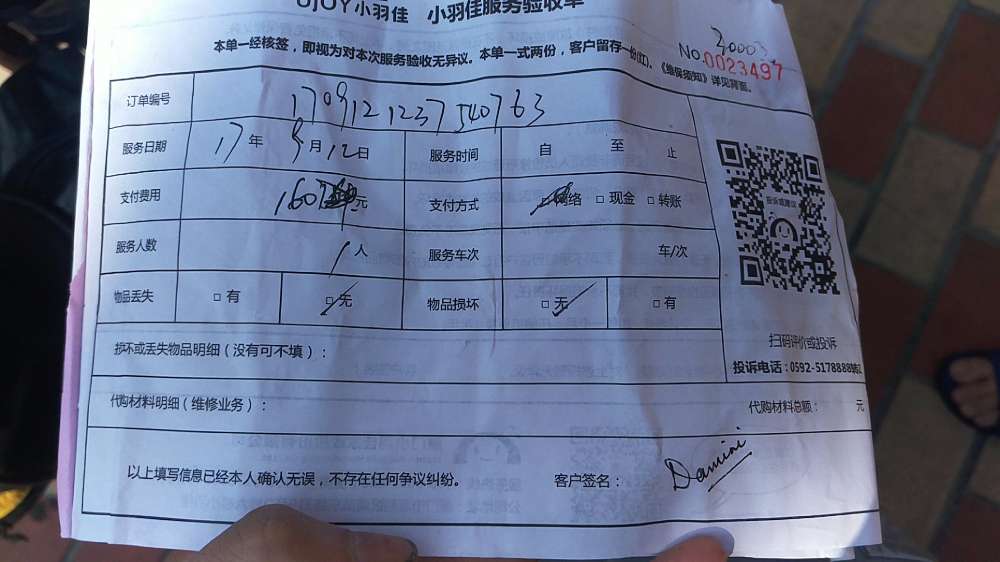 UJOY小羽佳 小羽佳服务验收单
30003
本单一经核签，即视为对本次服务验收无异议。本单一式两份，客户留存一份(红)、《维保须知》详见背面。
NO.0023497
订单编号 170912123754076 3
服务日期 17年 9月12日 服务时间 自 至 止
支付费用 160 元 支付方式 □网络 □现金 □转账
服务人数 1人 服务车次 车/次
物品丢失 □有 □无 物品损坏 □无 □有
投诉或建议
扫码评价或投诉
损坏或丢失物品明细（没有可不填）：
投诉电话：0592-5178888
代购材料明细（维修业务）： 代购材料总额： 元
以上填写信息已经本人确认无误，不存在任何争议纠纷。 客户签名：